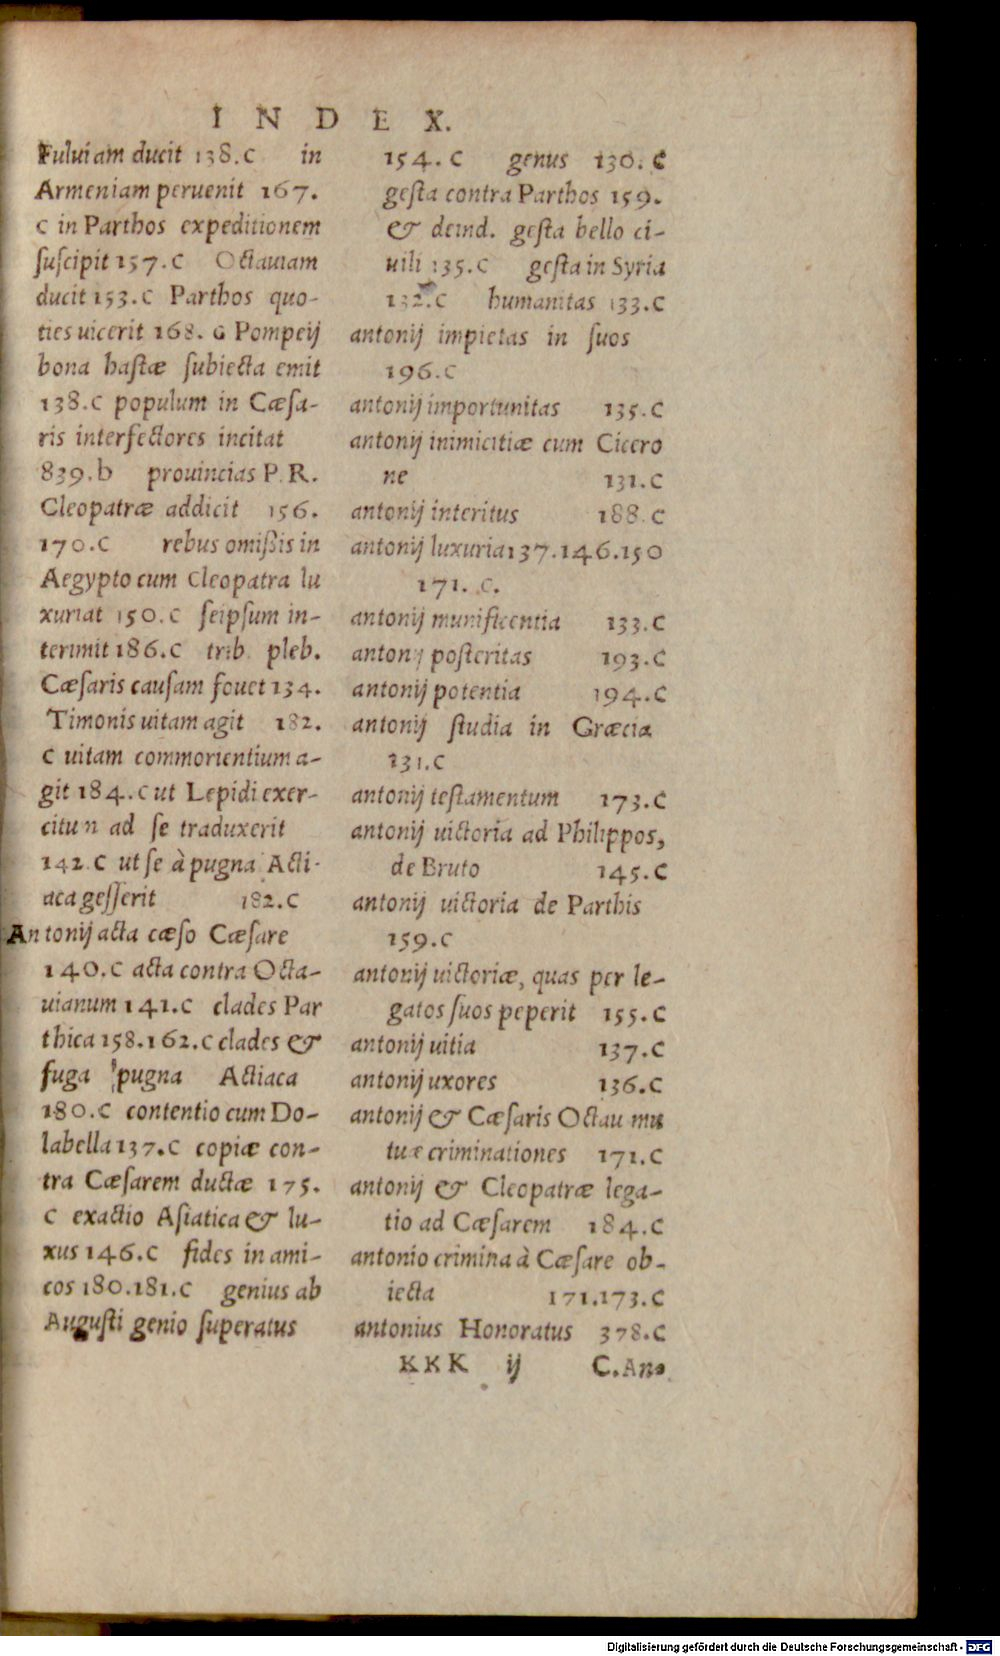 INDEX.
Fuluiam ducit 138.C in
Armeniam peruenit 167.
C in Parthos expeditionem
suscipit 157.C Octauiam
ducit 153.C Parthos quo-
ties uicerit 168. G Pompeij
bona hastæ subiecta emit
138.C populum in Cæsa-
ris interfectores incitat
839.b prouincias P.R.
Cleopatræ addicit 156.
170.C rebus omißis in
Aegypto cum Cleopatra lu
xuriat 150.C seipsum in-
terimit 186.C trib. pleb.
Cæsaris causam fouet 134.
Timonis uitam agit 182.
C uitam commorientium a-
git 184.C ut Lepidi exer-
citun ad se traduxerit
142.C ut se à pugna Acti-
aca gesserit 182.C
Antonij acta cæso Cæsare
140.C acta contra Octa-
uianum 141.C clades Par
thica 158.162.C clades &
fuga pugna Actiaca
180.C contentio cum Do-
labella 137.C copiæ con-
tra Cæsarem ductæ 175.
C exactio Asiatica & lu-
xus 146.C fides in ami-
cos 180.181.C genius ab
Augusti genio superatus
154.C genus 130.C
gesta contra Parthos 159.
& deind. gesta bello ci-
uili 135.C gesta in Syria
132.C humanitas 133.C
antonij impietas in suos
196.C
antonij importunitas 135.C
antonij inimicitiæ cum Cicero
ne 131.C
antonij interitus 188.C
antonij luxuria 137.146.150
171. C.
antonij munificentia 133.C
antonij posteritas 193.C
antonij potentia 194.C
antonij studia in Græcia
131.C
antonij testamentum 173.C
antonij uictoria ad Philippos,
de Bruto 145.C
antonij uictoria de Parthis
159.C
antonij uictoriæ, quas per le-
gatos suos peperit 155.C
antonij uitia 137.C
antonij uxores 136.C
antonij & Cæsaris Octau mu
tuæ criminationes 171.C
antonij & Cleopatræ lega-
tio ad Cæsarem 184.C
antonio crimina à Cæsare ob-
iecta 171.173.C
antonius Honoratus 378.C
KKK ij C.An-
Digitalisierung gefördert durch die Deutsche Forschungsgemeinschaft - DFG